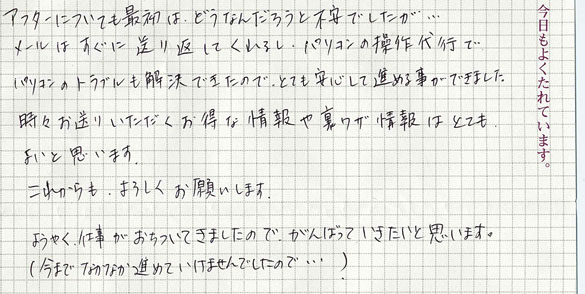 アフターについても最初は、どうなんだろうと不安でしたが…
メールはすぐに送り返してくれるし、パソコンの操作代行で
パソコンのトラブルも解決できたので、とても安心して進める事ができました
時々お送りいただくお得な情報や裏ワザ情報はとても
よいと思います。
これからも、よろしくお願いします。
ようやく、仕事がおちついてきましたので、がんばっていきたいと思います。
(今までなかなか進めていけませんでしたので… )
今日もよくたれています。